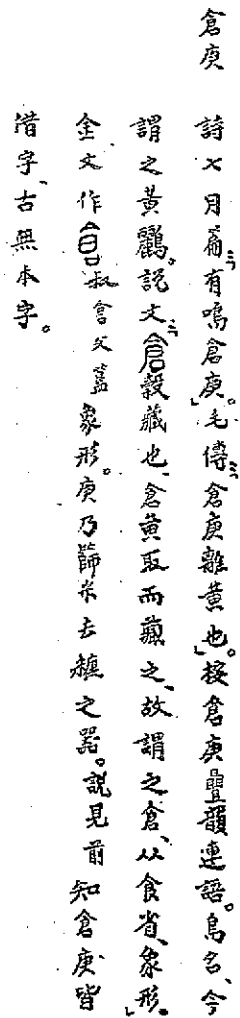 倉庚
詩七月「篇有鳴倉庚。」毛傳「倉庚離黃也。」按倉庚疊韻連語。鳥名、今
謂之黃鸝。說文「倉穀藏也、倉黃取而藏之、故謂之倉、从食省、象形。」
金文作倉叔倉父簋象形。庚乃篩米去穅之器。說見前知倉庚皆
借字、古無本字。